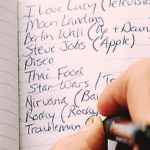 I Love Lucy (Televisio
Moon Landing
Berlin Wall (Up + Down
Steve Jobs (Apple)
Disco
Thai Food
Star Wars / Tr
Nirvana (Ba
Rocky (Rocky
Troubleman (